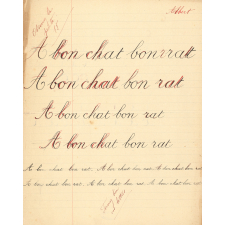 Albert
A bon chat bon rat
A bon chat bon rat
A bon chat bon rat
A bon chat bon rat
A bon chat bon rat. A bon chat bon rat. A bon chat bon rat
A bon chat bon rat. A bon chat bon rat. A bon chat bon rat.